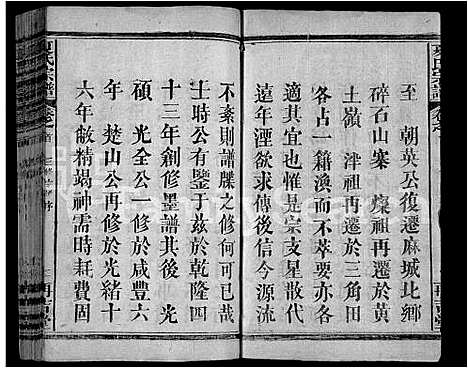 氏宗譜
至 朝英公復遷麻城比鄉
碎石山寨 燦祖再遷於黄
土嶺 泮祖再遷於三角田
各占一籍渙而不萃要亦各
適其宜也惟是宗支星散代
遠年湮欲求傳後信今源流
不紊則譜牒之修何可已哉
士時公有鑒于兹於乾隆四
十三年創修墨譜其後 光
碩 光全公一修於咸豐六
年 楚山公再修於光緒十
六年敝精竭神需時耗費固
氏宗譜 卷首